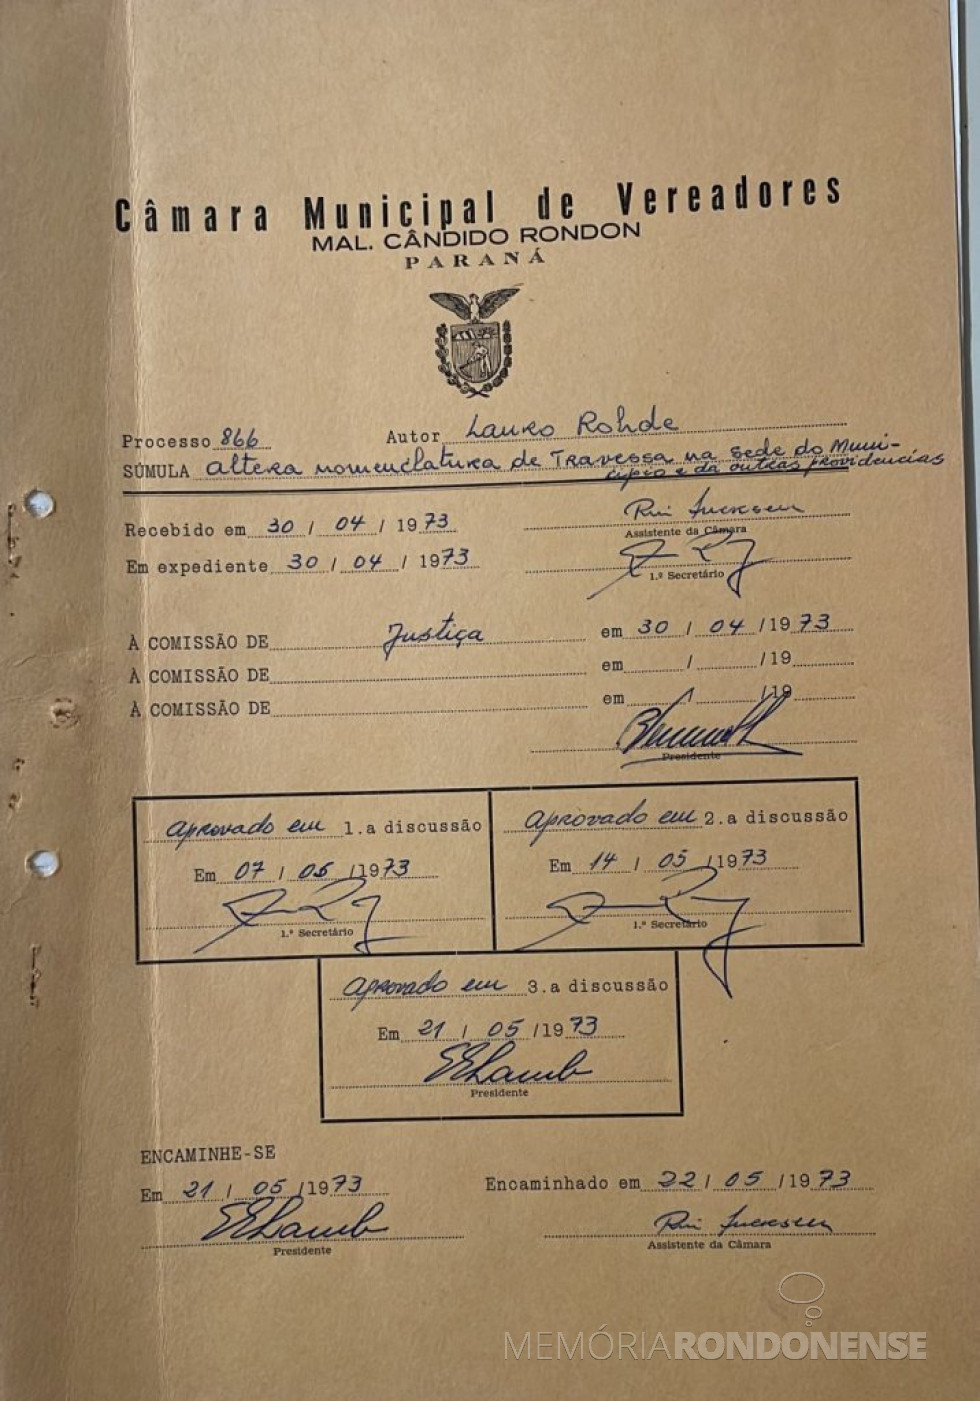 Câmara Municipal de Vereadores
MAL. CÂNDIDO RONDON
PARANÁ
Processo 866 Autor Lauro Rohde
SÚMULA Altera nomenclatura de Travessa na sede do Muni-
cípio e dá outras providencias
Recebido em 30 / 04 / 1973 Rui
Assistente da Câmara
Em expediente 30 / 04 / 1973
1.º Secretário
À COMISSÃO DE Justiça em 30 / 04 /1973
À COMISSÃO DE em / /19
À COMISSÃO DE em / /19
Presidente
Aprovado em 1.a discussão
Em 07 / 05 /1973
1.º Secretário
Aprovado em 2.a discussão
Em 14 / 05 /1973
1.º Secretário
Aprovado em 3.a discussão
Em 21 / 05 /1973
Presidente
ENCAMINHE-SE
Em 21 / 05 /1973 Encaminhado em 22 / 05 /1973
Rui
Presidente Assistente da Câmara
MEMÓRIARONDONENSE